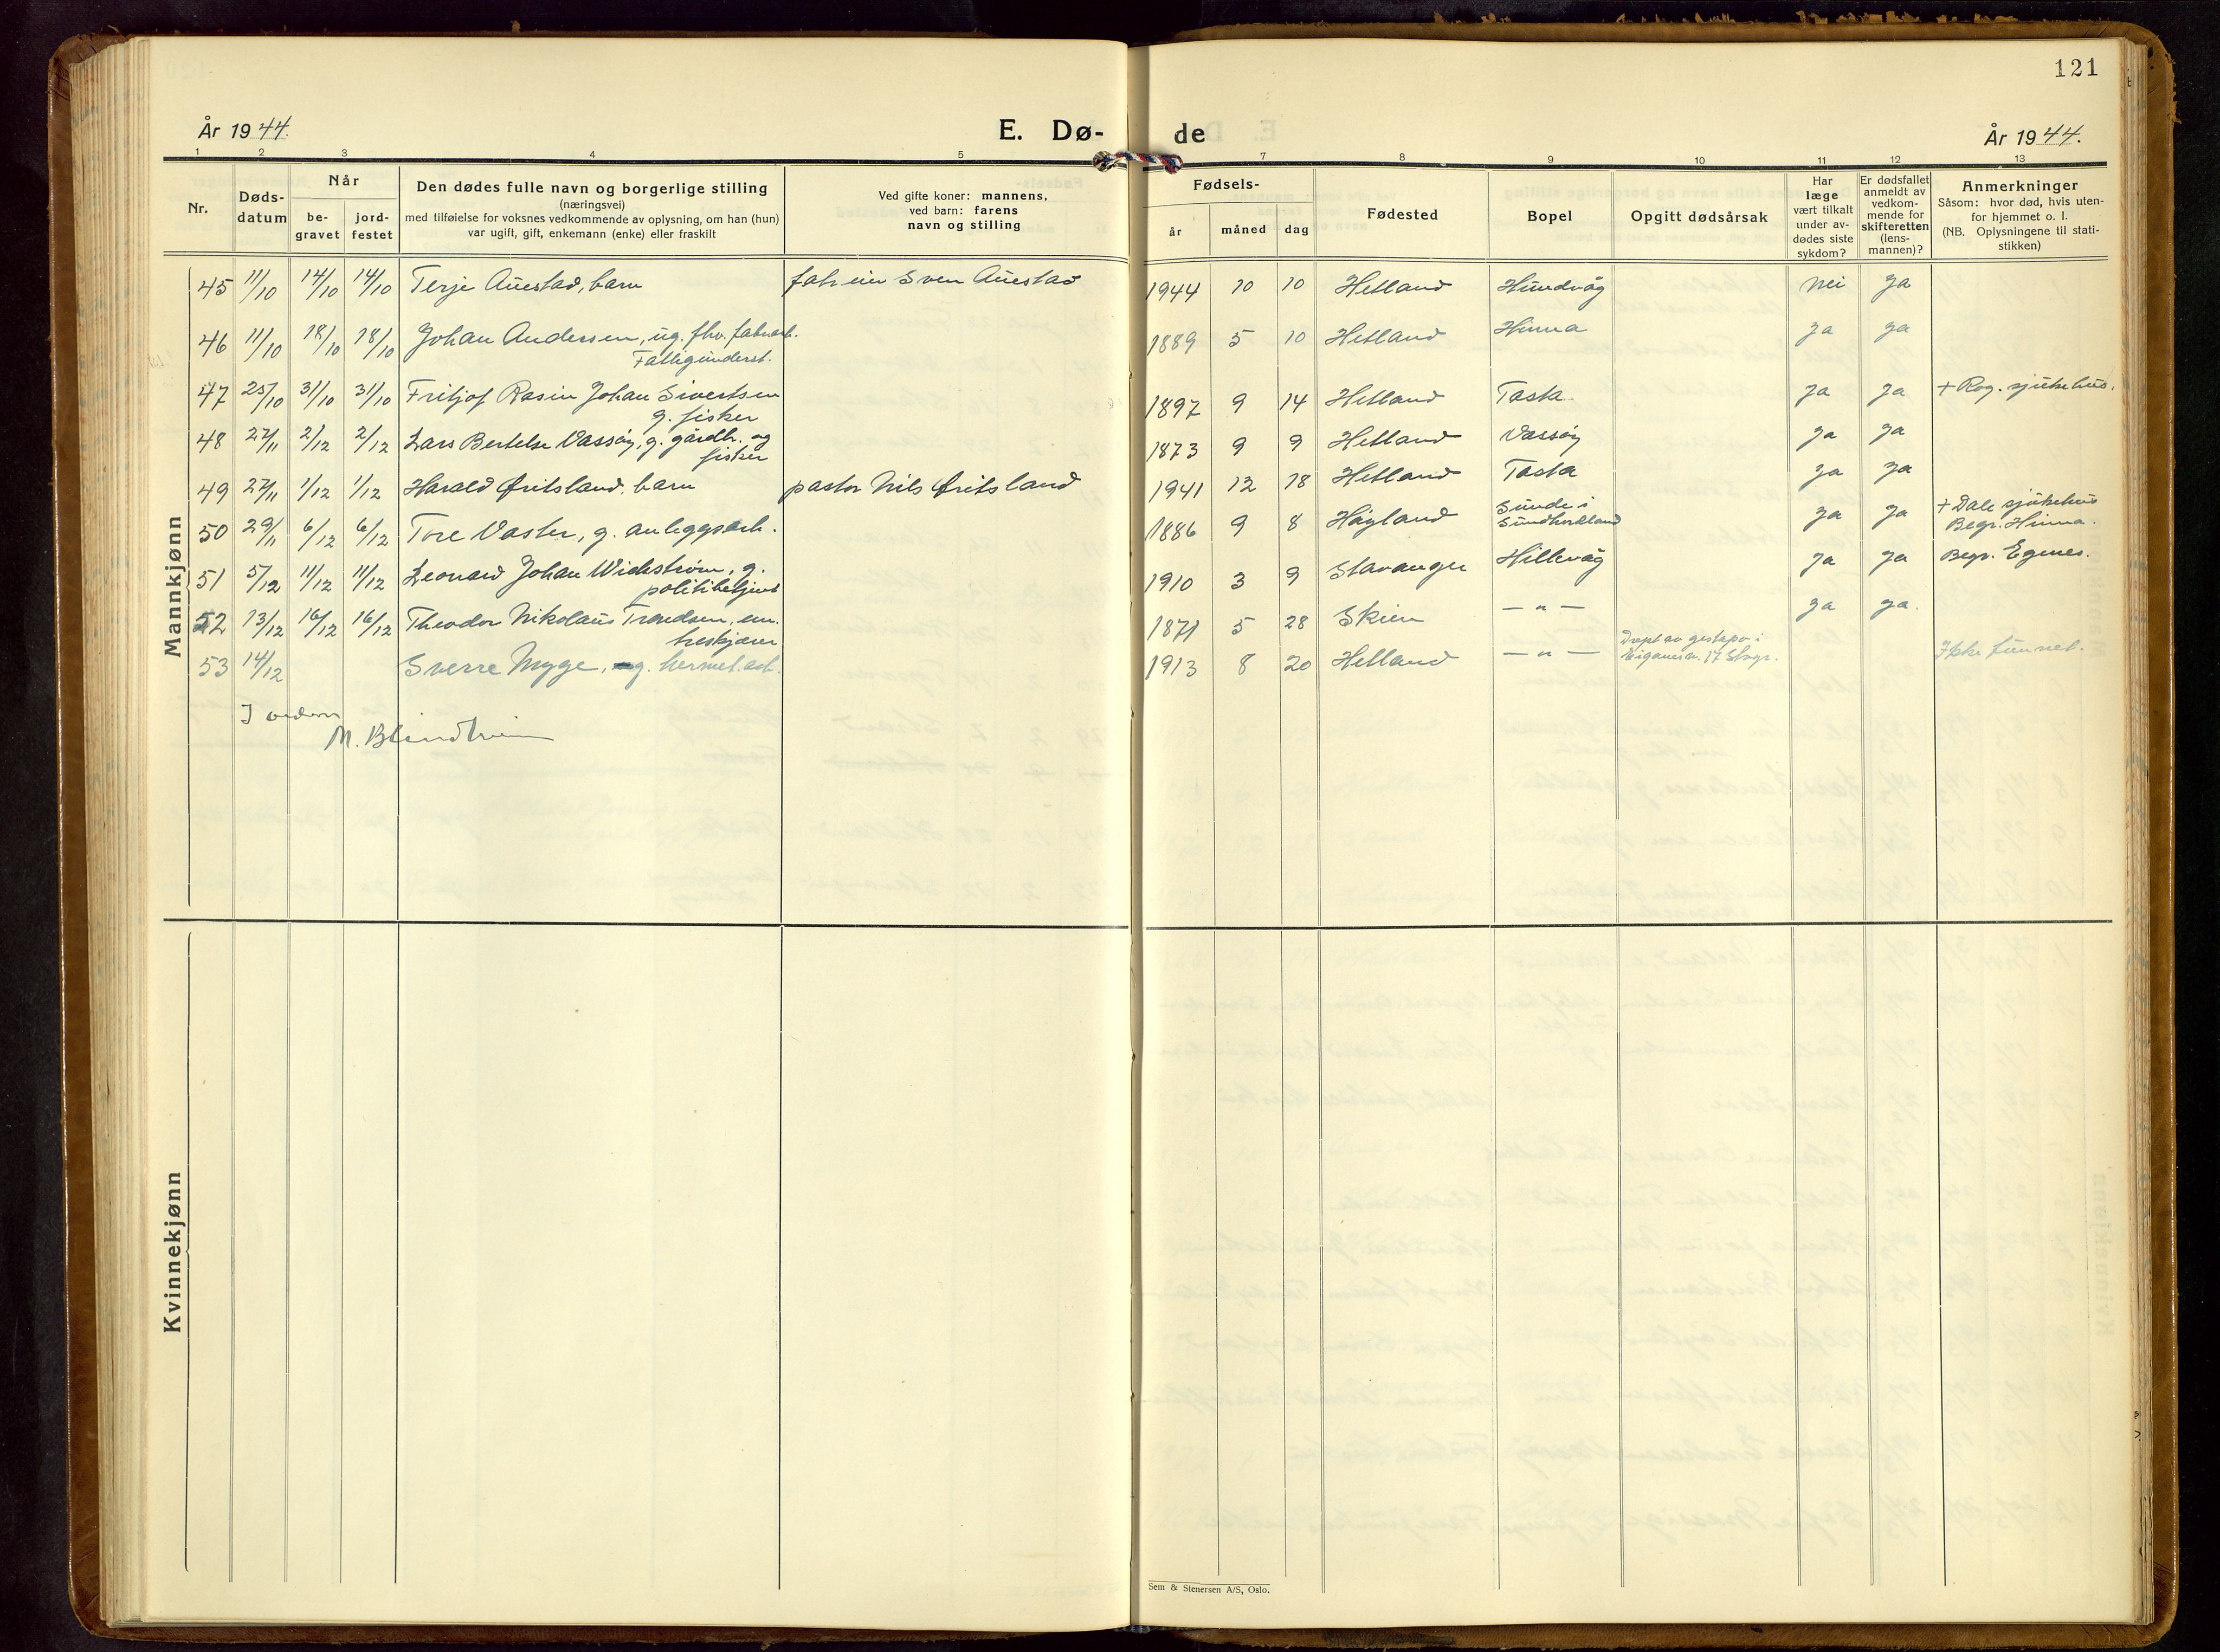 121
År 1944.
E. Dø-
de
År 1944.
1 2 3 4 5 7 8 9 10 11 12 13
Nr.
Døds-
datum
Når
be-
gravet
jord-
festet
Den dødes fulle navn og borgerlige stilling
(næringsvei)
med tilføielse for voksnes vedkommende av oplysning, om han (hun)
var ugift, gift, enkemann (enke) eller fraskilt
Ved gifte koner: mannens,
ved barn: farens
navn og stilling
Fødsels-
år
måned
dag
Fødested
Bopel
Opgitt dødsårsak
Har
læge
vært tilkalt
under av-
dødes siste
sykdom?
Er dødsfallet
anmeldt av
vedkom-
mende for
skifteretten
(lens-
mannen)?
Anmerkninger
Såsom: hvor død, hvis uten-
for hjemmet o. l.
(NB. Oplysningene til stati-
stikken)
Mannkjønn
45 11/10 14/10 14/10 Terje Auestad, barn fabr.eier Sven Auestad 1944 10 10 Hetland Hundvåg Nei Ja
46 11/10 18/10 18/10 Johan Andersen, ug. fhv. fabrarb. 1889 5 10 Hetland Hinna Ja Ja
Fattigunderst.
47 25/10 31/10 31/10 Fritjof Rasin Johan Sivertsen 1897 9 14 Hetland Tasta Ja Ja + Rog. sjukehus.
g. fisker
48 27/11 2/12 2/12 Lars Bertelse Vassøy, g. gårdbr. og 1873 9 9 Hetland Vassøy Ja Ja
fisker
49 27/11 1/12 1/12 Harald Øritsland, barn pastor Nils Øritsland 1941 12 18 Hetland Tasta Ja Ja
50 29/11 6/12 6/12 Tore Vaster, g. anleggsarb. 1886 9 8 Høyland Sunde i Ja Ja + Dale sjukehus
Sundhordland Begr. Hinna.
51 5/12 11/12 11/12 Leonard Johan Wickstrøm, g. 1910 3 9 Stavanger Hillevåg Ja Ja Begr. Egenes.
politibetjent
52 13/12 16/12 16/12 Theodor Nikolaus Trondsen, em. 1871 5 28 Skien — " — Ja Ja.
treskjærer
53 14/12 Sverre Myge, g. hermet.arb. 1913 8 20 Hetland — " — Drept av gestapo i Ikke funnet.
Eiganesv. 17 Stvgr.
I orden
M. Blindheim
Kvinnekjønn
Sem & Stenersen A/S, Oslo.